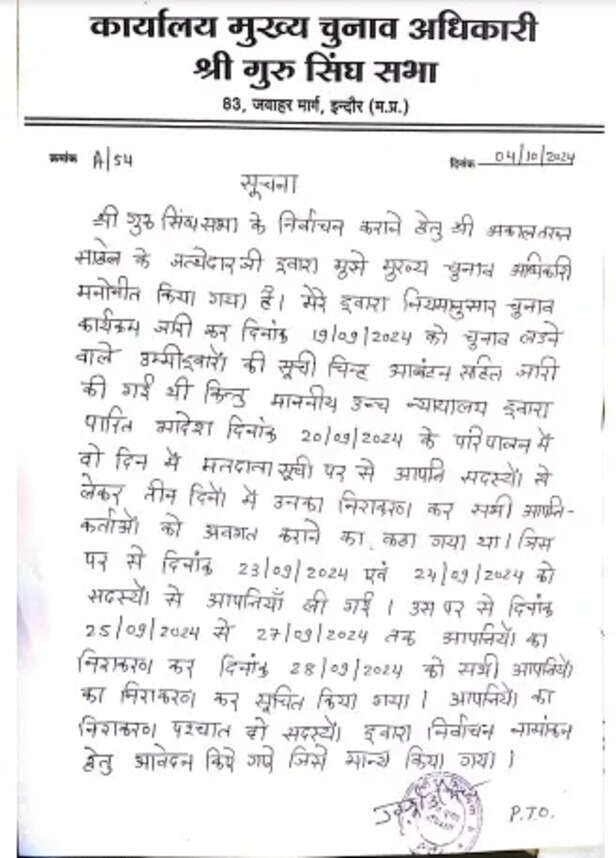 कार्यालय मुख्य चुनाव अधिकारी
श्री गुरु सिंघ सभा
83, जवाहर मार्ग, इन्दौर (म.प्र.)
क्रमांक A/54 दिनांक 04/10/2024
सूचना
श्री गुरु सिंघ सभा के निर्वाचन कराने हेतु श्री अकाल तख्त
साहेब के जत्थेदार जी द्वारा मुझे मुख्य चुनाव अधिकारी
मनोनीत किया गया है। मेरे द्वारा नियमानुसार चुनाव
कार्यक्रम जारी कर दिनांक 19/09/2024 को चुनाव लडने
वाले उम्मीद्वारों की सूची चिन्ह आवंटन सहित जारी
की गई थी किन्तु माननीय उच्च न्यायालय द्वारा
पारित आदेश दिनांक 20/09/2024 के परिपालन में
दो दिन में मतदाता सूची पर से आपत्ति सदस्यों से
लेकर तीन दिनों में उनका निराकरण कर सभी आपत्ति-
कर्ताओं को अवगत कराने का कहा गया था। जिस
पर से दिनांक 23/09/2024 एवं 24/09/2024 को
सदस्यों से आपत्तियाँ ली गई। उस पर से दिनांक
25/09/2024 से 27/09/2024 तक आपत्तियों का
निराकरण कर दिनांक 28/09/2024 को सभी आपत्तियों
का निराकरण कर सूचित किया गया। आपत्तियों का
निराकरण पश्चात दो सदस्यों द्वारा निर्वाचन नामांकन
हेतु आवेदन किये गये जिसे मान्य किया गया।
P.T.O.